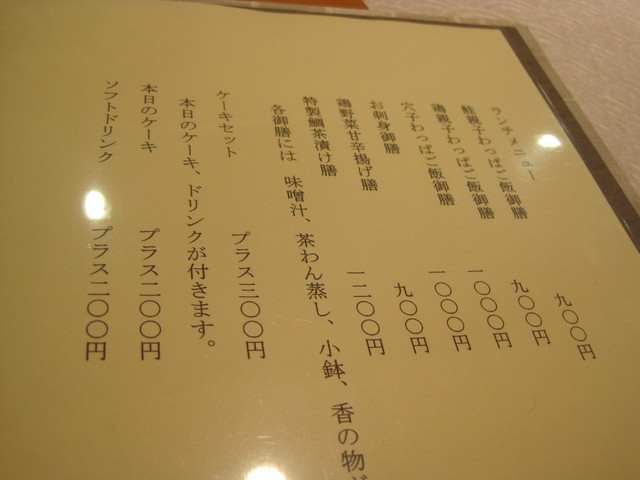 ランチメニュー
鮭親子わっぱご飯御膳 九〇〇円
鶏親子わっぱご飯御膳 九〇〇円
穴子わっぱご飯御膳 一〇〇〇円
お刺身御膳 一〇〇〇円
鶏野菜甘辛揚げ膳 九〇〇円
特製鯛茶漬け膳 一二〇〇円
各御膳には 味噌汁、茶わん蒸し、小鉢、香の物が
ケーキセット プラス三〇〇円
本日のケーキ、ドリンクが付きます。
本日のケーキ プラス二〇〇円
ソフトドリンク プラス二〇〇円